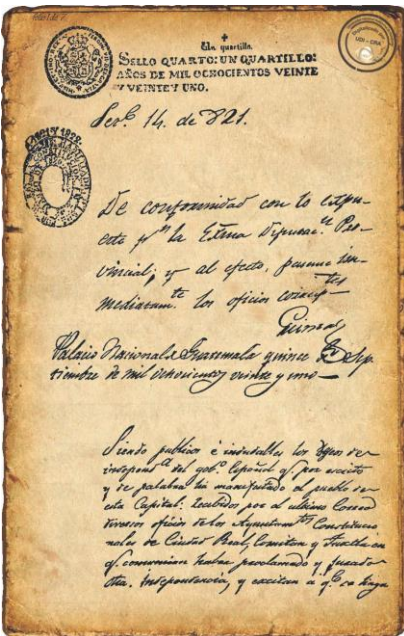 Un quartillo.
SELLO QUARTO: UN QUARTILLO:
AÑOS DE MIL OCHOCIENTOS VEINTE
Y VEINTE Y UNO.
14. de 821.
De conformidad con lo expu-
esto pr. la Exma Diputac.n Pro-
vincial; y al efecto, pasense in-
mediatam.te los oficios
Palacio Nacional de Guatemala quince de Sep
tiembre de mil ochocientos veinte y uno
Siendo publicos é indudables los deseos de
independ.a del gob.o Español q.e por escrito
y de palabra ha manifestado el pueblo de
esta Capital: recibidos por el ultimo Correo
diversos oficios de los Ayuntam.tos Constitucio
nales de Ciudad Real, Comitan y Tuxtla en
q.e comunican haber proclamado y jurado
dha. independencia, y excitan á q.e se haga